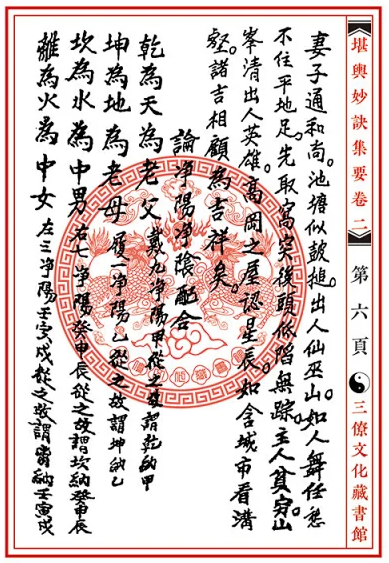 堪輿妙訣集要卷二 第六頁 三僚文化藏書館
妻子通和尚。池塘似鼓搥。出人仙巫山。如人舞任愁
不住平地足。先取窩突後頭依陷無踪。主人貧窮。山
峯清出人英雄。高岡之屋認星辰。如含城市看溝
壑。諸吉相顧為吉祥矣。
論淨陽淨陰配合
乾為天為老父 戴九淨陽甲從之故謂乾納甲
坤為地為老母 履一淨陽乙從之故謂坤納乙
坎為水為中男 右七淨陽癸申辰從之故謂坎納癸申辰
離為火為中女 左三淨陽壬寅戌從之故謂离納壬寅戌